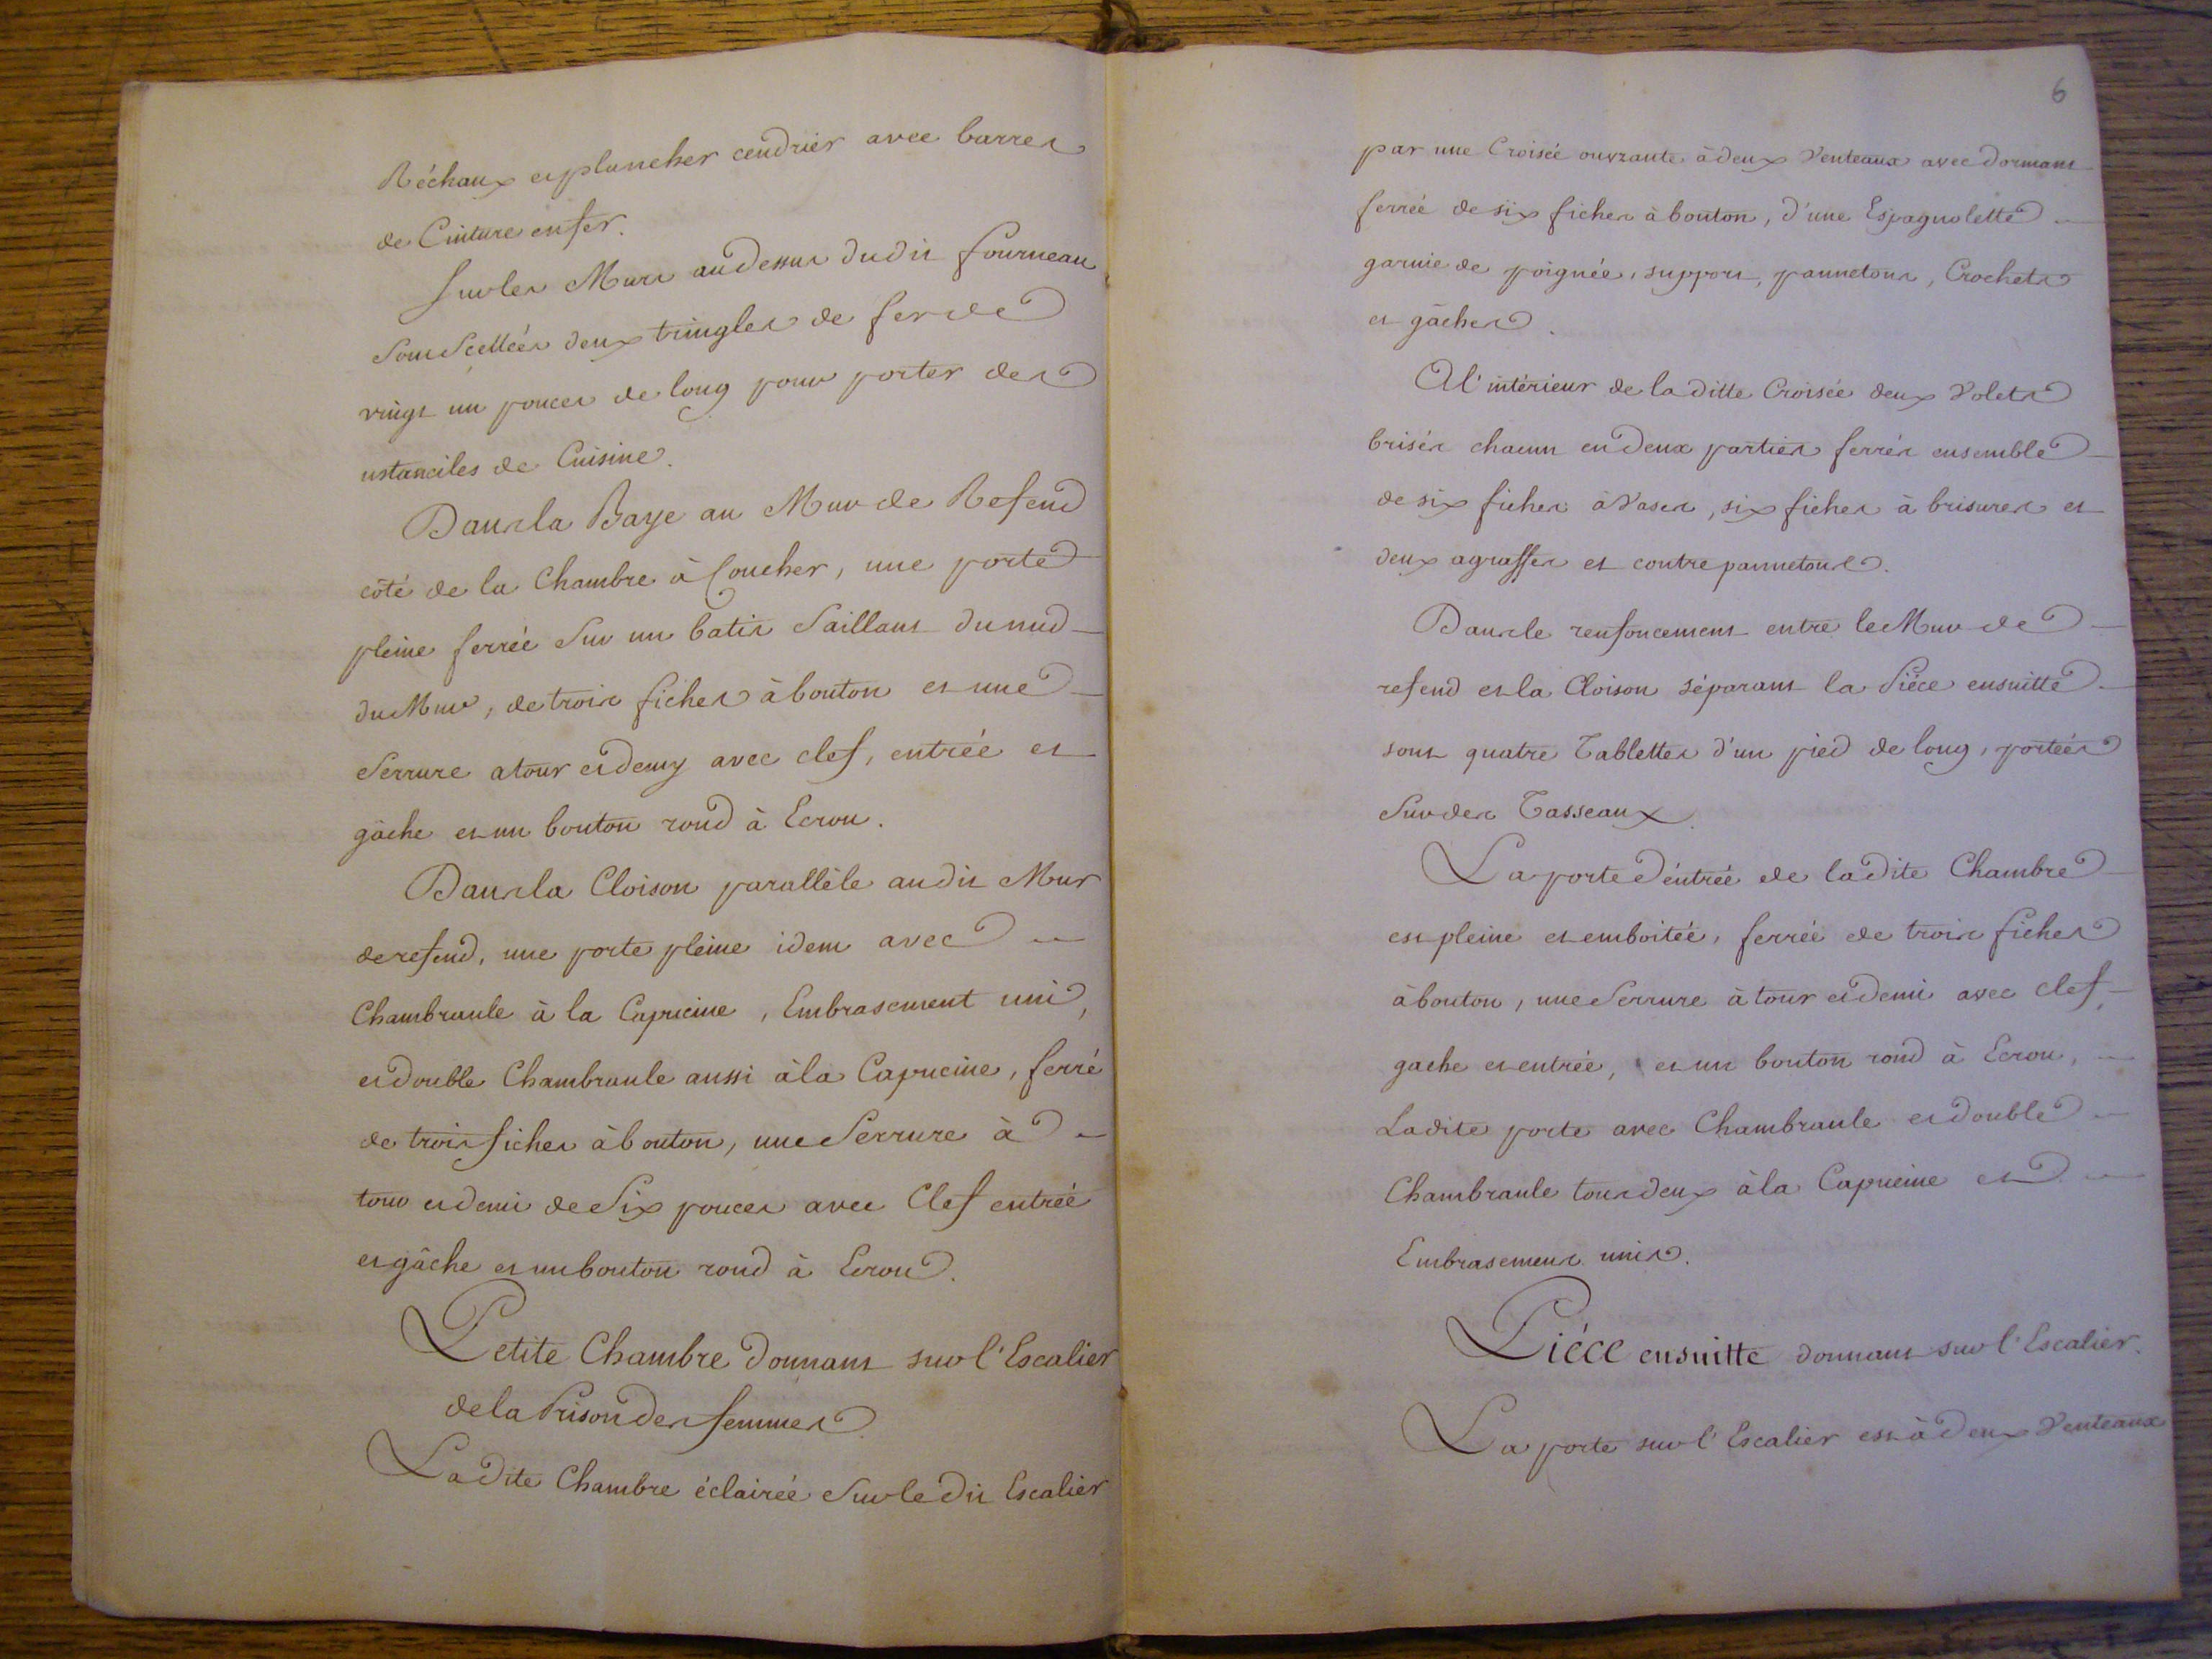 Réchaux et plancher cendrier avec barres
de Ceinture en fer.
Sur les Murs au dessus du dit fourneau
sont Scellées deux tringles de fer de
vingt un pouces de long pour porter des
ustanciles de Cuisine.
Dans la Baye au Mur de Refend
côté de la Chambre à Coucher, une porte
pleine ferrée sur un batis Saillant du nud
du Mur, de trois fiches à bouton et une
Serrure a tour et demy avec clef, entrée et
gâche et un bouton rond à Ecrou.
Dans la Cloison parallèle au dit Mur
de refend, une porte pleine idem avec
Chambranle à la Capucine, Embrasement uni,
et double Chambranle aussi à la Capucine, ferré
de trois fiches à bouton, une Serrure à
tour et demi de Six pouces avec Clef entrée
et gâche et un bouton rond à Ecrou.
Petite Chambre donnant sur l'Escalier
de la Prison des femmes.
La dite Chambre éclairée Sur le dit Escalier
6
par une Croisée ouvrante à deux Venteaux avec dormant
ferrée de six fiches à bouton, d'une Espagnolette
garnie de poignée, support, pannetons, Crochets
et gâches.
A l'intérieur de la ditte Croisée deux Volets
brisés chacun en deux parties ferrés ensemble
de six fiches à Vases, six fiches à brisures et
deux agraffes et contre pannetons.
Dans le renfoncement entre le Mur de
refend et la Cloison séparant la Piéce ensuitte
sont quatre Tablettes d'un pied de long, portées
Sur des Tasseaux.
La porte d'entrée de la dite Chambre
est pleine et emboitée, ferrée de trois fiches
à bouton, une Serrure à tour et demi avec clef,
gache et entrée, et un bouton rond à Ecrou,
La dite porte avec Chambranle et double
Chambranle tous deux à la Capucine et
Embrasement unis.
Piéce ensuitte donnant sur l'Escalier.
La porte sur l'Escalier est à deux Venteaux